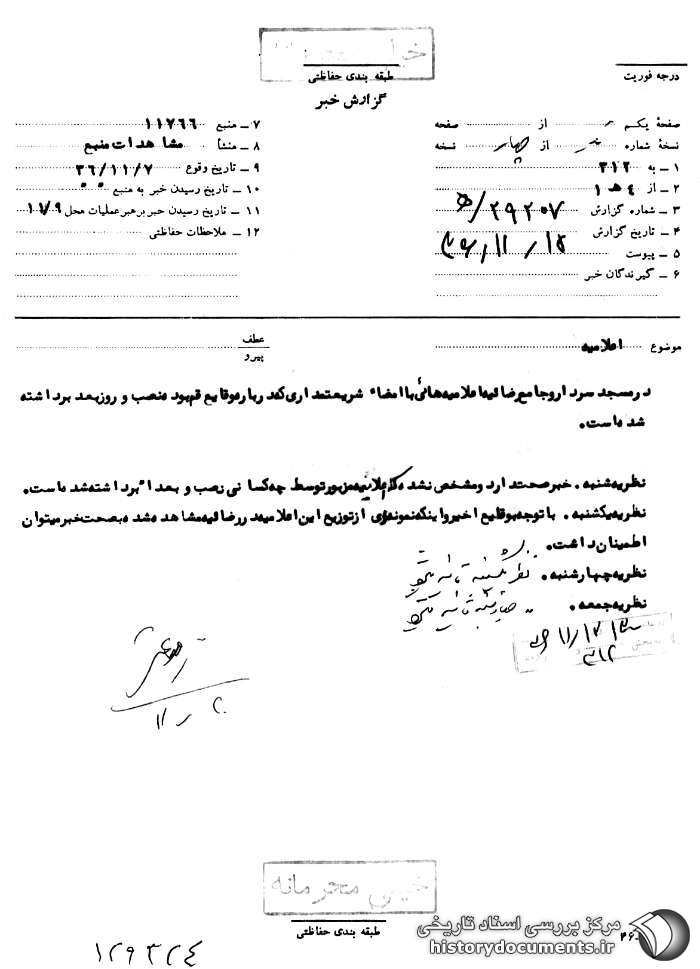 طبقه بندی حفاظتی
درجه فوریت
گزارش خبر
صفحهٔ یکم از صفحه
نسخهٔ شماره از چهار نسخه
۱ ـ به ۳۱۲
۲ ـ از ۴ ه ۱
۳ ـ شماره گزارش ۲۹۲۰۷/ ه
۴ ـ تاریخ گزارش
۵ ـ پیوست
۶ ـ گیرندگان خبر
۷ ـ منبع ۱۱۷۶۶
۸ ـ منشأ مشاهدات منبع
۹ ـ تاریخ وقوع ۳۶/۱۱/۷
۱۰ ـ تاریخ رسیدن خبر به منبع
۱۱ ـ تاریخ رسیدن خبر برهبر عملیات محل
۱۲ ـ ملاحظات حفاظتی
موضوع اعلامیه
عطف
پیرو
در مسجد سردار و جامع رضائیه اعلامیه هائی با امضاء شریعتمداری که درباره وقایع قم بود ه نصب و روز بعد برداشته
شده است.
نظریه شنبه . خبر صحت دارد و مشخص نشده که اعلامیه مزبور توسط چه کسانی نصب و بعداً برداشته شده است.
نظریه یکشنبه . با توجه بوقایع اخیر و اینکه نمونه ای از توزیع این اعلامیه در رضائیه مشاهده شده بصحت خبر میتوان
اطمینان داشت.
نظریه چهارشنبه . نظریه یکشنبه تائید میشود
نظریه جمعه .
۳۱۲
خیلی محرمانه
طبقه بندی حفاظتی
مرکز بررسی اسناد تاریخی
historydocuments.ir
۱۲۹۳۲۴